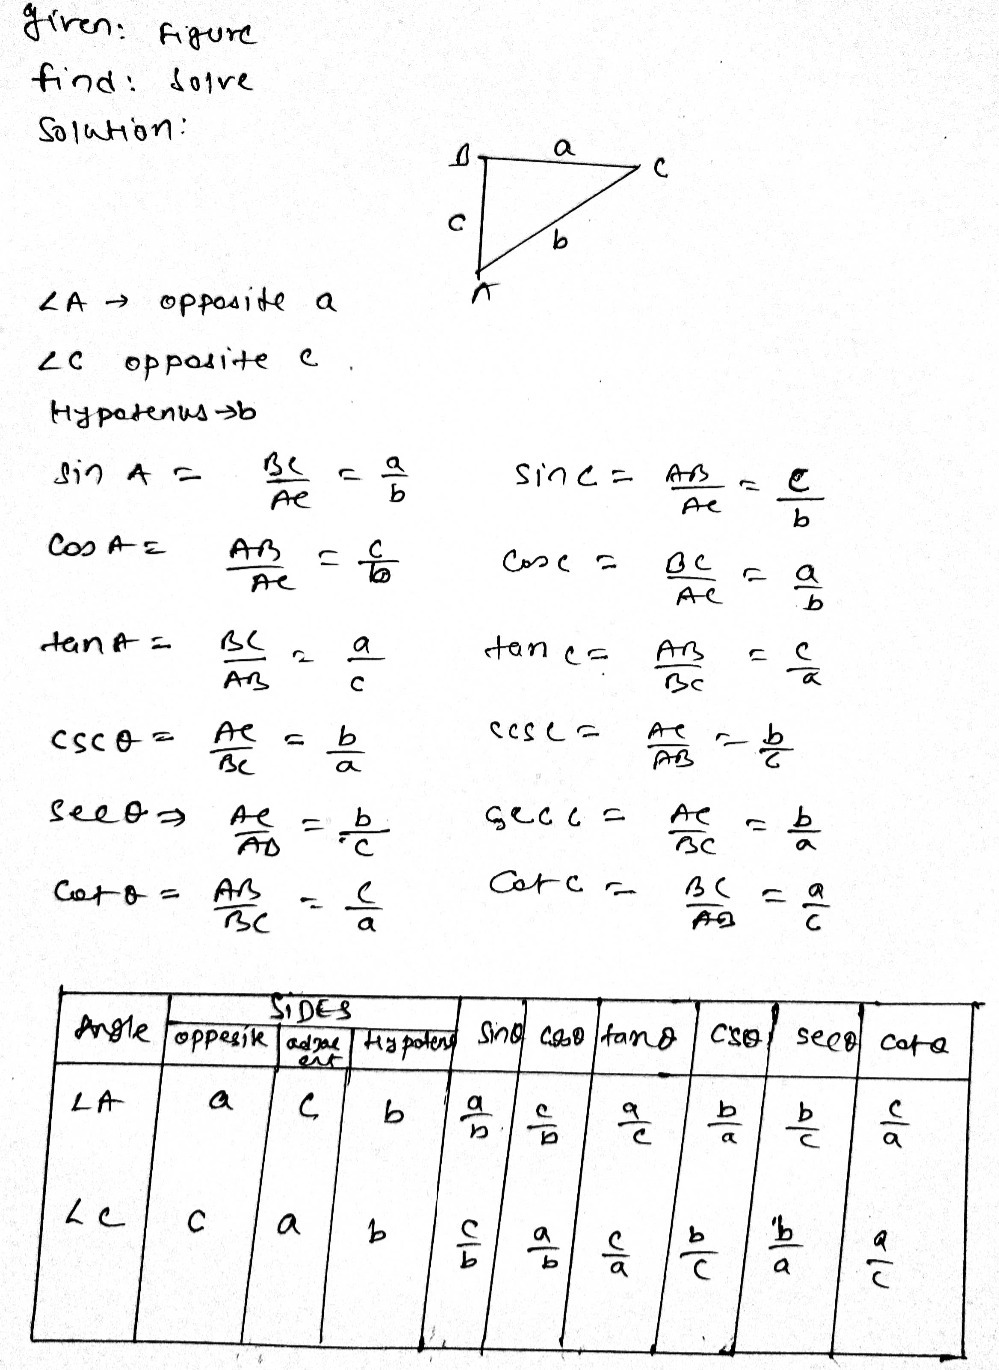 Given: Figure
find: Solve
Solution:
B a C
c
b
A
∠A → opposite a
∠C opposite c.
Hypotenus → b
Sin A = BC/AC = a/b
Sin C = AB/AC = c/b
Cos A = AB/AC = c/b
Cos C = BC/AC = a/b
tan A = BC/AB = a/c
tan C = AB/BC = c/a
CSC θ = AC/BC = b/a
CCSC = AC/AB = b/c
Sec θ ⇒ AC/AB = b/c
Sec C = AC/BC = b/a
Cot θ = AB/BC = c/a
Cot C = BC/AB = a/c
Angle SIDES Sinθ Cosθ tanθ CSCθ secθ cotθ
opposite adjacent Hypotens
∠A a c b a/b c/b a/c b/a b/c c/a
∠C c a b c/b a/b c/a b/c b/a a/c